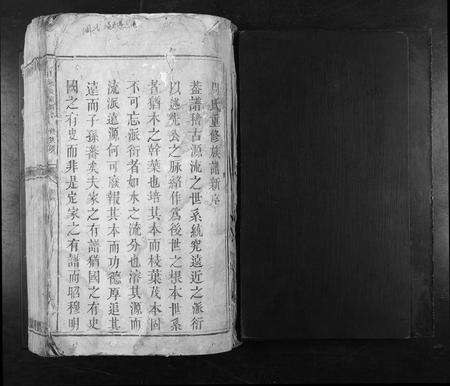 周氏重修族譜新序
蓋譜稽古源流之世系統究遠近之派衍
以述先公之脉絡作為後世之根本世系
者猶木之幹葉也培其本而枝葉茂本固
不可忘派衍者如水之流分也濬其源而
流派遠源何可廢報其本而功德厚追其
遠而子孫蕃矣夫家之有譜猶國之有史
國之有史而非是定家之有譜而昭穆明